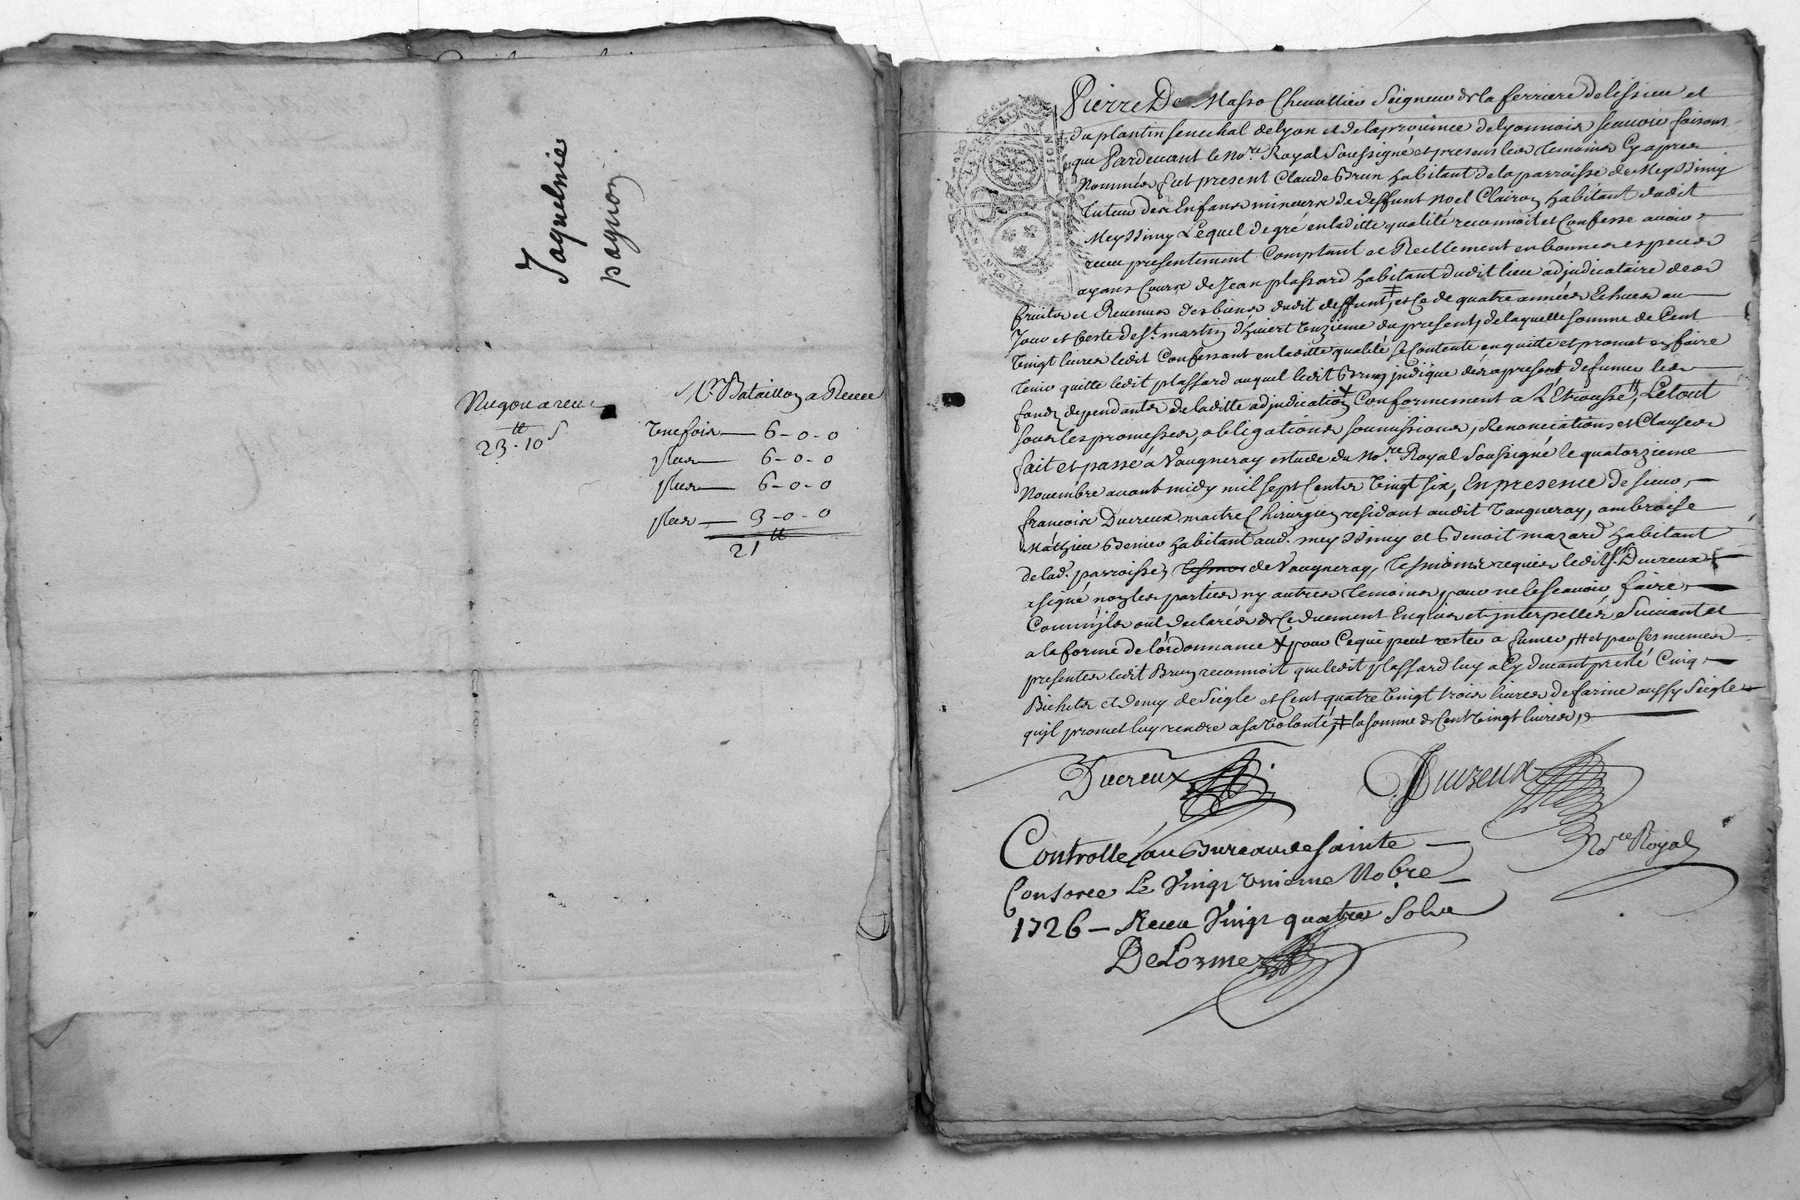 Jaquelmie
pagnon
Nugon a receu
23 ₶ 10 s
Mr. Bataillon a Receu
Une fois — 6 - 0 - 0
plus — 6 - 0 - 0
plus — 6 - 0 - 0
plus — 3 - 0 - 0
21 ₶
Pierre De Masso Chevallier Seigneur de la ferriere de lissieu et
du plantin senechal de lyon et de la province de lyonnois scavoir faisons
que Pardevant le Nore. Royal Soussigné et presens les temoins Cy apres
Nommés fut present Claude Brun habitant de la parroisse de Meyssimy
tuteur des Enfans mineurs de deffunt noel Clairon habitant dudit
Meyssimy Lequel de gré en laditte qualité reconnoit et Confesse avoir
receu presentement Comptant et Reellement en bonnes especes
ayans Cours de Jean plassard habitant dudit lieu adjudicataire des
fruits et Revenus des biens dudit deffunt, ‡ et Ce de quatre années Echues au
Jour et feste de St. martin d'hivert unzieme du present, de laquelle somme de Cent
vingt livres ledit Confessant en laditte qualité se Contente en quitte et promet en faire
tenir quitte ledit plassard auquel ledit Brun indique des a present de fumer les
fonds dependants de laditte adjudication + Conformement a L'Etrousse, # Le tout
sous les promesses, obligations soumissions, Renonciations et Clauses
fait et passé a Vaugneray estude du Nore. Royal Soussigné le quatorzieme
Novembre avant midy mil sept Cents vingt six, En presence de sieur
francois Ducreux maitre Chirurgien residant audit Vaugneray, ambroise
Mathieu Benier habitant aud. meyssimy et Benoit mazard habitant
de lad. parroisse de Vaugneray, tesmoins requis ledit sr. Ducreux
signé non les parties ny autres temoins pour ne le scavoir faire
Comm'ils ont declarés de Ce duement Enquis et interpellés Suivant et
a la forme de l'ordonnance + pour Ce qui peut rester a fumer, # et par Ces memes
presentes ledit Brun reconnoit que ledit plassard luy a Cy devant presté Cinq
Bichets et demy de Seigle et Cent quatre vingt trois livres de farine aussy Seigle
qu'il promet luy rendre a sa volonté, ‡ la somme de Cent vingt livres,
Ducreux
Ducreux
Nore Royal
Controllé au Bureau de sainte
Consorce Le vingt unieme Nobre
1726 — Receu vingt quatre sols
DeLorme